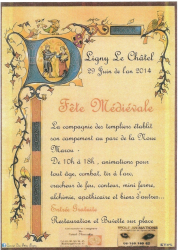 Ligny Le Châtel
29 Juin de l'an 2014
Fête Médiévale
La compagnie des templiers établit
son campement au parc de la Noue
Marou -
De 10h à 18h, animations pour
tout âge, combat, tir à l'arc,
cracheur de feu, conteur, mini ferme,
alchimie, apothicaire et bien d'autres...
Entrée Gratuite
Restauration et Buvette sur place